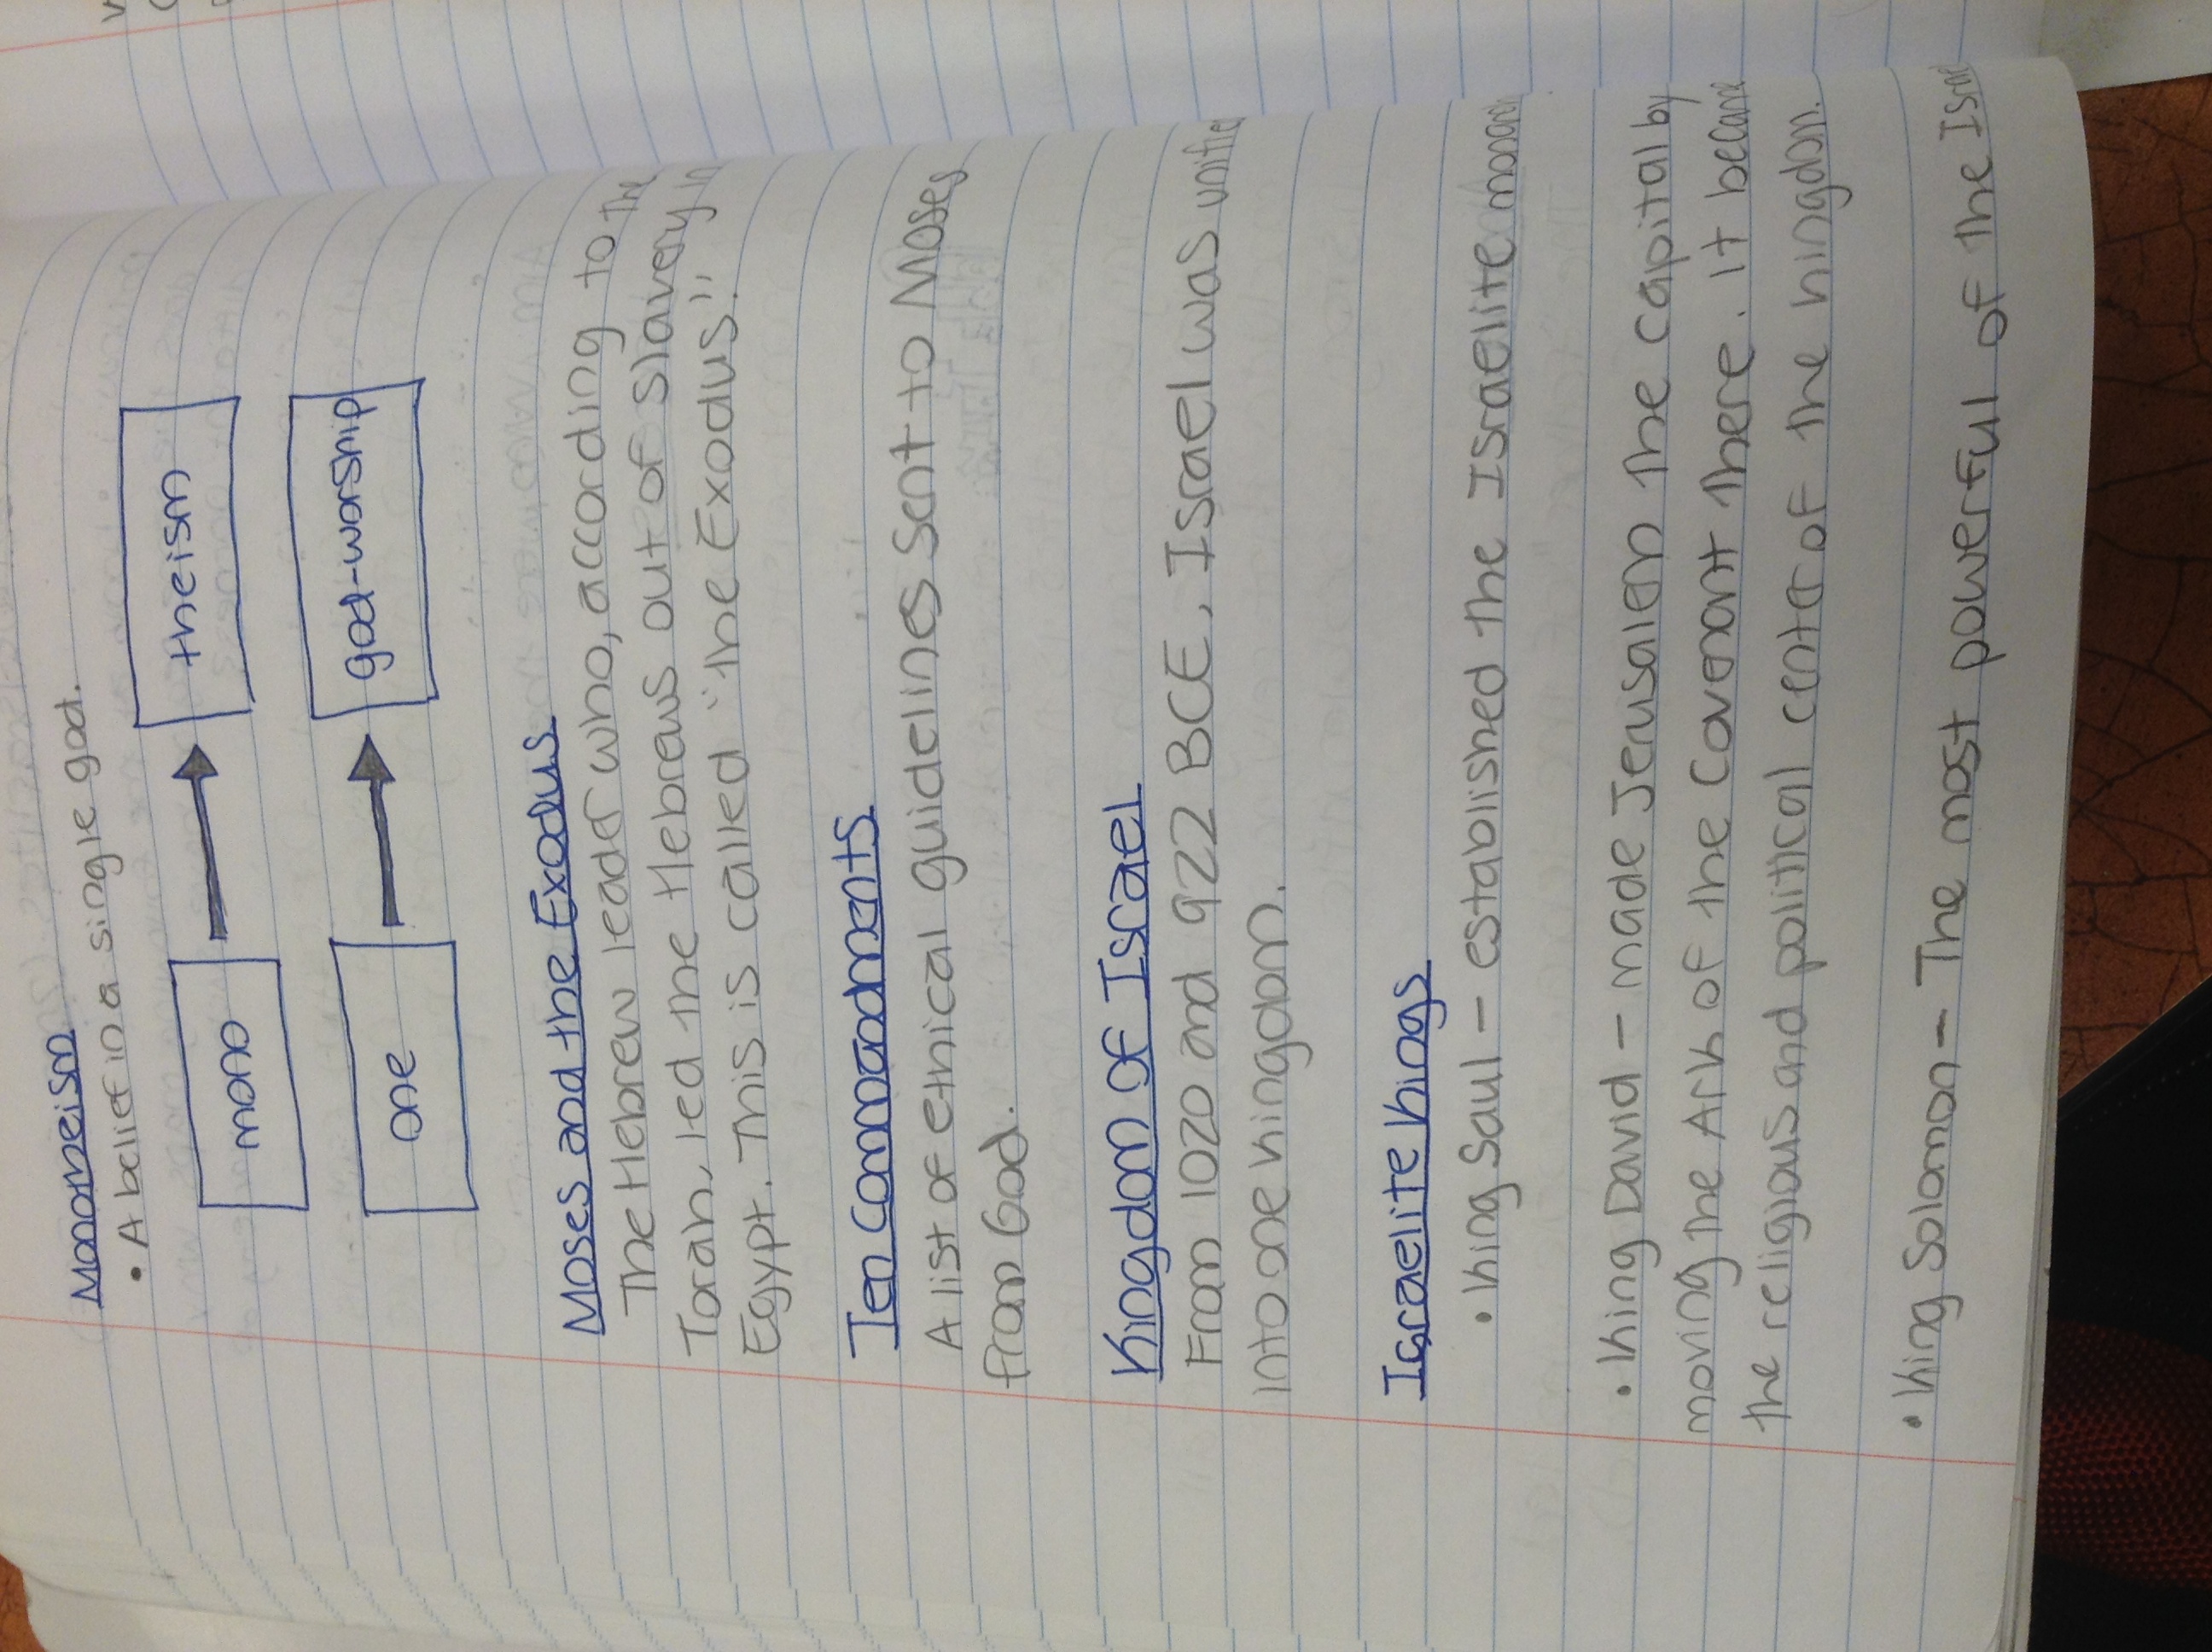 Monotheism
• A belief in a single god.
mono
theism
one
god-worship
Moses and the Exodus
The Hebrew leader who, according to the
Torah, led the Hebrews out of slavery in
Egypt. This is called "the Exodus."
Ten Commandments
A list of ethical guidelines sent to Moses
from God.
Kingdom of Israel
From 1020 and 922 BCE, Israel was
into one kingdom.
Israelite Kings
• King Saul – established the Israelite
• King David – made Jerusalem the capital by
moving the Ark of the Covenant there. It became
the religious and political center of the kingdom.
• King Solomon – The most powerful of the